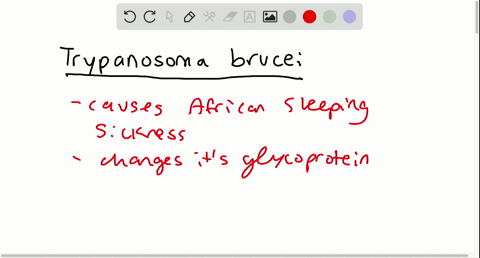 Trypanosoma brucei
- causes African Sleeping
Sickness
- changes it's glycoprotein